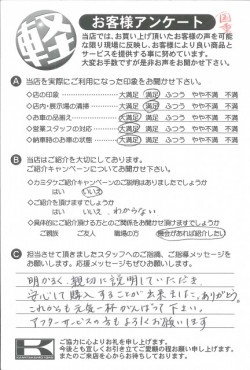 軽
お客様アンケート
当店では、お買い上げ頂いたお客様の声を可能
な限り現場に反映し、お客様により良い商品と
サービスを提供する事に努めています。
大変お手数ですが是非お声をお聞かせ下さい。
Ⓐ 当店を実際にご利用になった印象をお聞かせ下さい。
◇店の印象 大満足 満足 ふつう やや不満 不満
◇店内・展示場の清掃 大満足 満足 ふつう やや不満 不満
◇お車の品揃え 大満足 満足 ふつう やや不満 不満
◇営業スタッフの対応 大満足 満足 ふつう やや不満 不満
◇納車時のお車の状態 大満足 満足 ふつう やや不満 不満
Ⓑ 当店はご紹介を大切にしております。
ご紹介キャンペーンについてお聞かせ下さい。
◇カミタケご紹介キャンペーンのご説明はありましたでしょうか
はい いいえ
◇ご紹介を頂けますでしょうか
はい いいえ わからない
◇具体的にご紹介頂ける方とのご関係をお聞かせ頂けますでしょうか
ご親族 ご友人 職場の方 機会があれば紹介したい
Ⓒ 担当させて頂きましたスタッフへのご指摘、ご指導メッセージを
お願いします。応援メッセージもぜひお願いします。
明かるく、親切に説明していただき、
安心して購入することが出来ました、ありがとう。
これからも元気一杯がんばって下さい。
アフターサービスの方もよろしくお願いします
K
ご協力に心よりお礼を申し上げます。
今後とも宜しくお引き立てご愛顧の程お願い申し上げます。
またのご来店を心からお待ちしております。